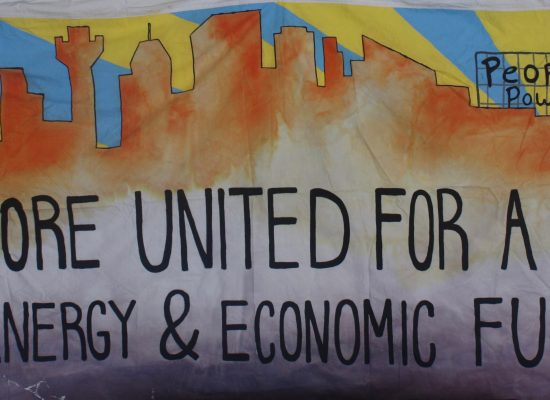 Peop
Pow
ORE UNITED FOR A
ENERGY & ECONOMIC FU